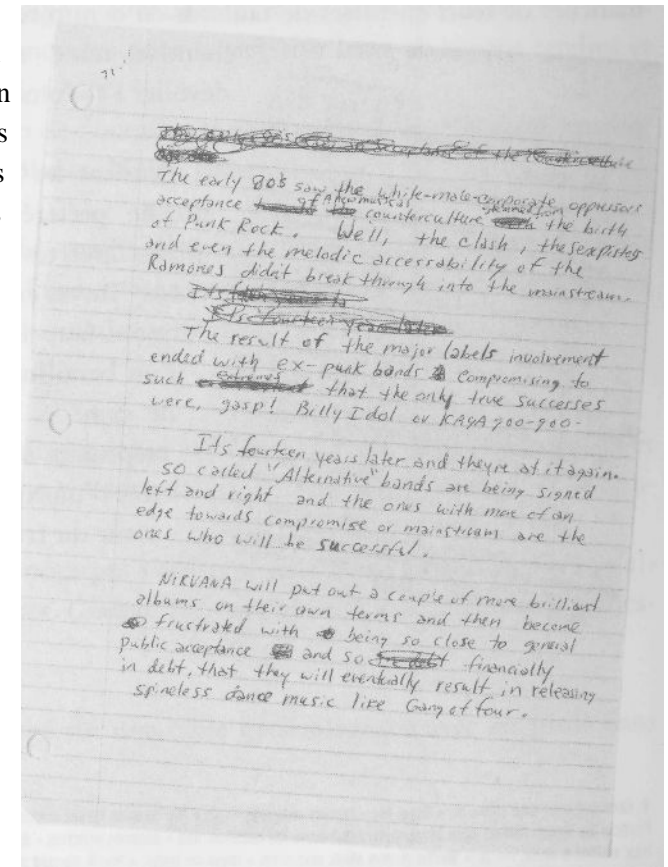 n
s
s
The early 80's saw the white-male-corporate oppressors
acceptance of A new musical counterculture stemmed from the birth
of Punk Rock. Well, the clash, the sexpistols
and even the melodic accessability of the
Ramones didn't break through into the mainstream.
Its fourteen years later
The result of the major labels involvement
ended with ex-punk bands compromising to
such extremes that the only true successes
were, gasp! Billy Idol or KAgA goo-goo-
Its fourteen years later and theyre at it again.
so called "Alternative" bands are being signed
left and right and the ones with more of an
edge towards compromise or mainstream are the
ones who will be successful.
NiRVANA will put out a couple of more brilliant
albums on their own terms and then become
frustrated with being so close to general
public acceptance and so financially
in debt, that they will eventually result in releasing
spineless dance music like Gang of four.